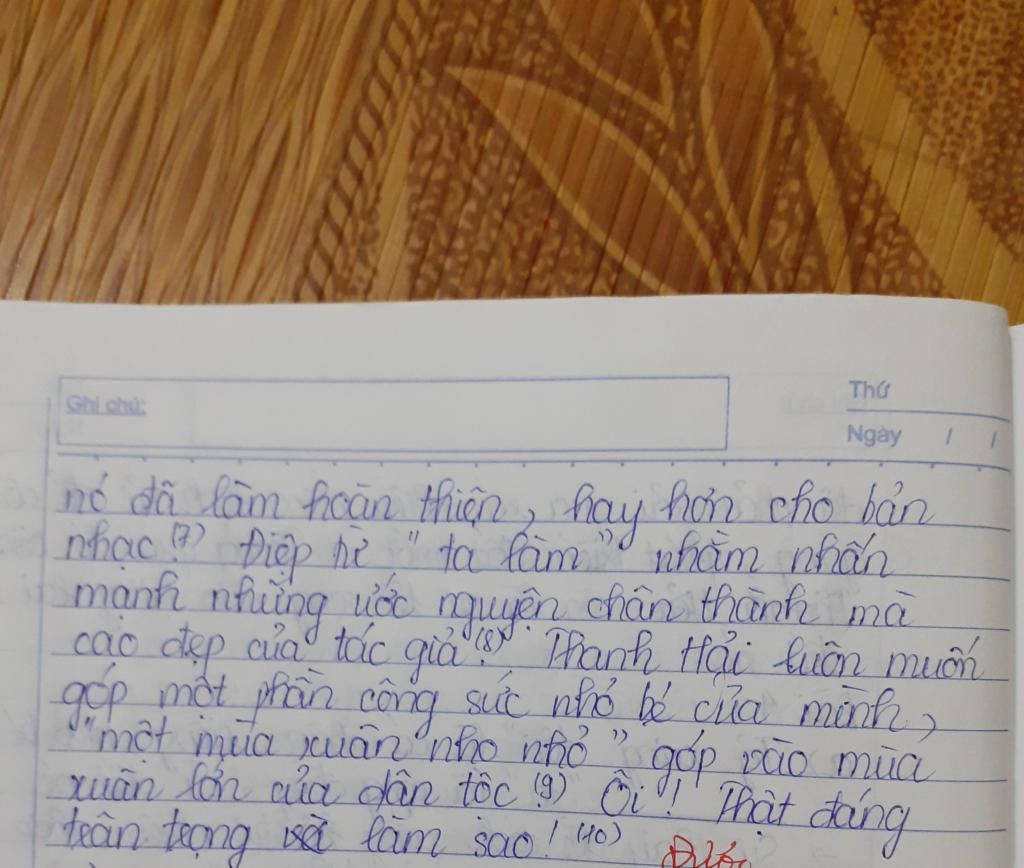 Ghi chú:
Thứ
Ngày / /
nó đã làm hoàn thiện, hay hơn cho bản
nhạc.(7) Điệp từ "ta làm" nhằm nhấn
mạnh những ước nguyện chân thành mà
cao đẹp của tác giả.(8) Thanh Hải luôn muốn
góp một phần công sức nhỏ bé của mình,
"một mùa xuân nho nhỏ" góp vào mùa
xuân lớn của dân tộc.(9) Ôi! Thật đáng
trân trọng làm sao! (10)
Được